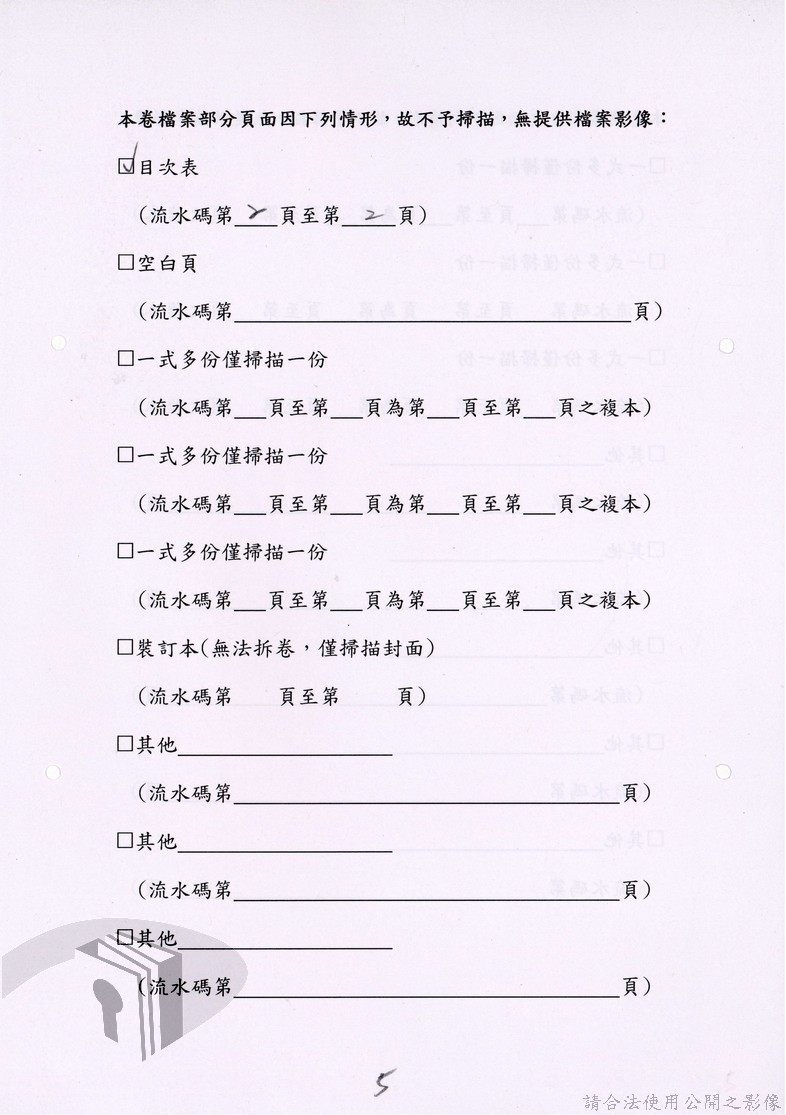 本卷檔案部分頁面因下列情形，故不予掃描，無提供檔案影像：
☑目次表
(流水碼第 2 頁至第 2 頁)
□空白頁
(流水碼第____________________頁)
□一式多份僅掃描一份
(流水碼第___頁至第___頁為第___頁至第___頁之複本)
□一式多份僅掃描一份
(流水碼第___頁至第___頁為第___頁至第___頁之複本)
□一式多份僅掃描一份
(流水碼第___頁至第___頁為第___頁至第___頁之複本)
□裝訂本(無法拆卷，僅掃描封面)
(流水碼第 頁至第 頁)
□其他____________________
(流水碼第____________________頁)
□其他____________________
(流水碼第____________________頁)
□其他____________________
(流水碼第____________________頁)
5
請合法使用公開之影像